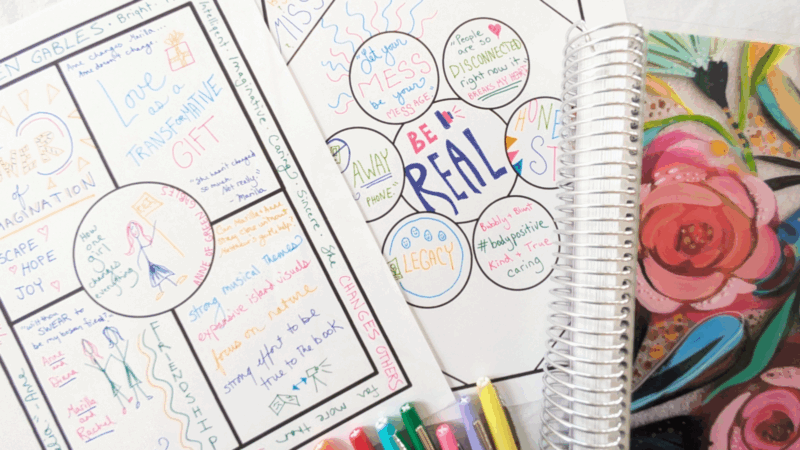 EN GABLES • Bright •
Intelligent, Imaginative, Caring, Sincere. She
CHANGES OTHERS
far more than
Anne changes Marilla...
Anne doesn't change.
Love
as a
TRANSFORMATIVE
GIFT
"She hasn't changed
so much.
Not really."
- Marilla
of
IMAGINATION
ESCAPE
HOPE
JOY
How
one
girl
changes
everything
ANNE OF GREEN GABLES
strong musical themes
expansive island visuals
focus on nature
strong effort to be
true to the book
SWEAR to
be my bosom friend"
Anne
and
Diana
Marilla
and
Rachel
FRIENDSHIP
MISS
"let your
MESS
be your
MESSAGE."
"People
are so
DISCONNECTED
right now it
BREAKS MY HEART"
BE
REAL
AWAY
PHONE."
HONE
ST
LEGACY
Bubbly + Blunt
#bodypositive
Kind + True
caring